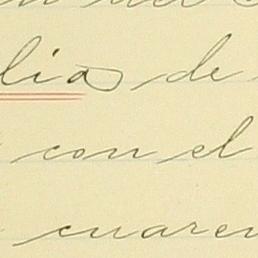 lia de
con el
cuaren